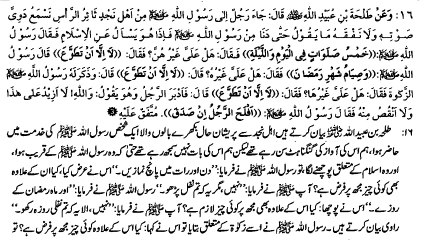 ١٦- وَعَنْ طَلْحَةَ بْنِ عُبَيْدِ اللّٰهِ ﷺ قَالَ: جَاءَ رَجُلٌ إِلٰى رَسُوْلِ اللّٰهِ ﷺ مِنْ اَهْلِ نَجْدٍ ثَائِرُ الرَّأْسِ نَسْمَعُ دَوِىَّ
صَوْتِهٖ وَلَا نَفْقَهُ مَا يَقُوْلُ حَتّٰى دَنَا مِنْ رَسُوْلِ اللّٰهِ ﷺ فَإِذَا هُوَ يَسْأَلُ عَنِ الْإِسْلَامِ فَقَالَ رَسُوْلُ
اللّٰهِ ﷺ ((خَمْسُ صَلَوَاتٍ فِى الْيَوْمِ وَاللَّيْلَةِ)) فَقَالَ: هَلْ عَلَىَّ غَيْرُ هُنَّ؟ فَقَالَ: ((لَا اِلَّا اَنْ تَطَّوَّعَ)) قَالَ رَسُوْلُ
اللّٰهِ ﷺ ((وَصِيَامُ شَهْرِ رَمَضَانَ)) فَقَالَ: هَلْ عَلَىَّ غَيْرُهٗ؟ فَقَالَ: ((لَا اِلَّا اَنْ تَطَّوَّعَ)) قَالَ: وَذَكَرَ لَهٗ رَسُوْلُ اللّٰهِ ﷺ
الزَّكٰوةَ فَقَالَ: هَلْ عَلَىَّ غَيْرُهَا؟ فَقَالَ: ((لَا اِلَّا اَنْ تَطَّوَّعَ)) قَالَ: فَأَدْبَرَ الرَّجُلُ وَهُوَ يَقُوْلُ: وَاللّٰهِ! لَا اَزِيْدُ عَلٰى هٰذَا
وَلَا اَنْقُصُ مِنْهُ فَقَالَ رَسُوْلُ اللّٰهِ ﷺ ((اَفْلَحَ الرَّجُلُ اِنْ صَدَقَ)). مُتَّفَقٌ عَلَيْهِ
١٦: طلحہ بن عبید اللہ بیان کرتے ہیں: اہل نجد سے پریشان حال بکھرے بالوں والا ایک شخص رسول اللہ ﷺ کی خدمت میں
حاضر ہوا، ہم اس کی آواز کی گنگناہٹ سن رہے تھے لیکن ہم اس کی بات نہیں سمجھ رہے تھے حتیٰ کہ وہ رسول اللہ ﷺ کے قریب ہوا،
اور وہ اسلام کے متعلق پوچھنے لگا، تو رسول اللہ ﷺ نے فرمایا: "دن اور رات میں پانچ نمازیں۔" اس نے عرض کیا، کیا ان کے علاوہ
بھی کوئی چیز مجھ پر فرض ہے؟ آپ ﷺ نے فرمایا: "نہیں، مگر یہ کہ تم نفل پڑھو۔" رسول اللہ ﷺ نے فرمایا: "اور ماہ رمضان کے
روزے۔" اس نے پوچھا: کیا اس کے علاوہ بھی مجھ پر کوئی چیز لازم ہے؟ آپ ﷺ نے فرمایا: "نہیں، الا یہ کہ تم نفلی روزہ رکھو۔"
راوی بیان کرتے ہیں، رسول اللہ ﷺ نے اسے زکوٰۃ کے متعلق بتایا تو اس نے کہا: کیا اس کے علاوہ کوئی چیز مجھ پر فرض ہے؟ تو